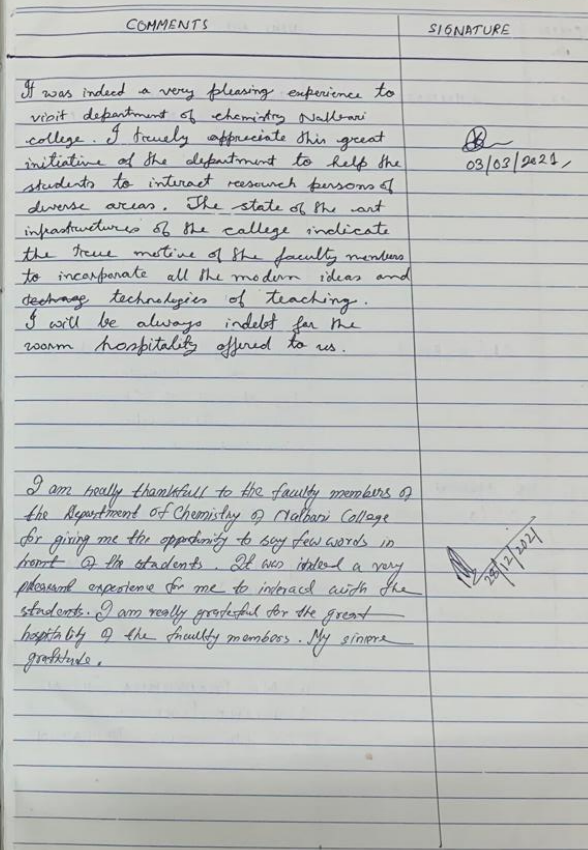 COMMENTS
SIGNATURE
It was indeed a very pleasing experience to
visit department of chemistry Nalbari
college. I truely appreciate this great
initiative of the department to help the
students to interact research persons of
diverse areas. The state of the art
infrastructures of the college indicate
the true motive of the faculty members
to incorporate all the modern ideas and
technologies of teaching.
I will be always indebt for the
warm hospitality offered to us.
03/03/2021,
I am really thankfull to the faculty members of
the Department of Chemistry of Nalbari College
for giving me the opportunity to say few words in
front of the students. It was indeed a very
pleasant experience for me to interact with the
students. I am really grateful for the great
hospitality of the faculty members. My sincere
gratitude.
28/12/2021